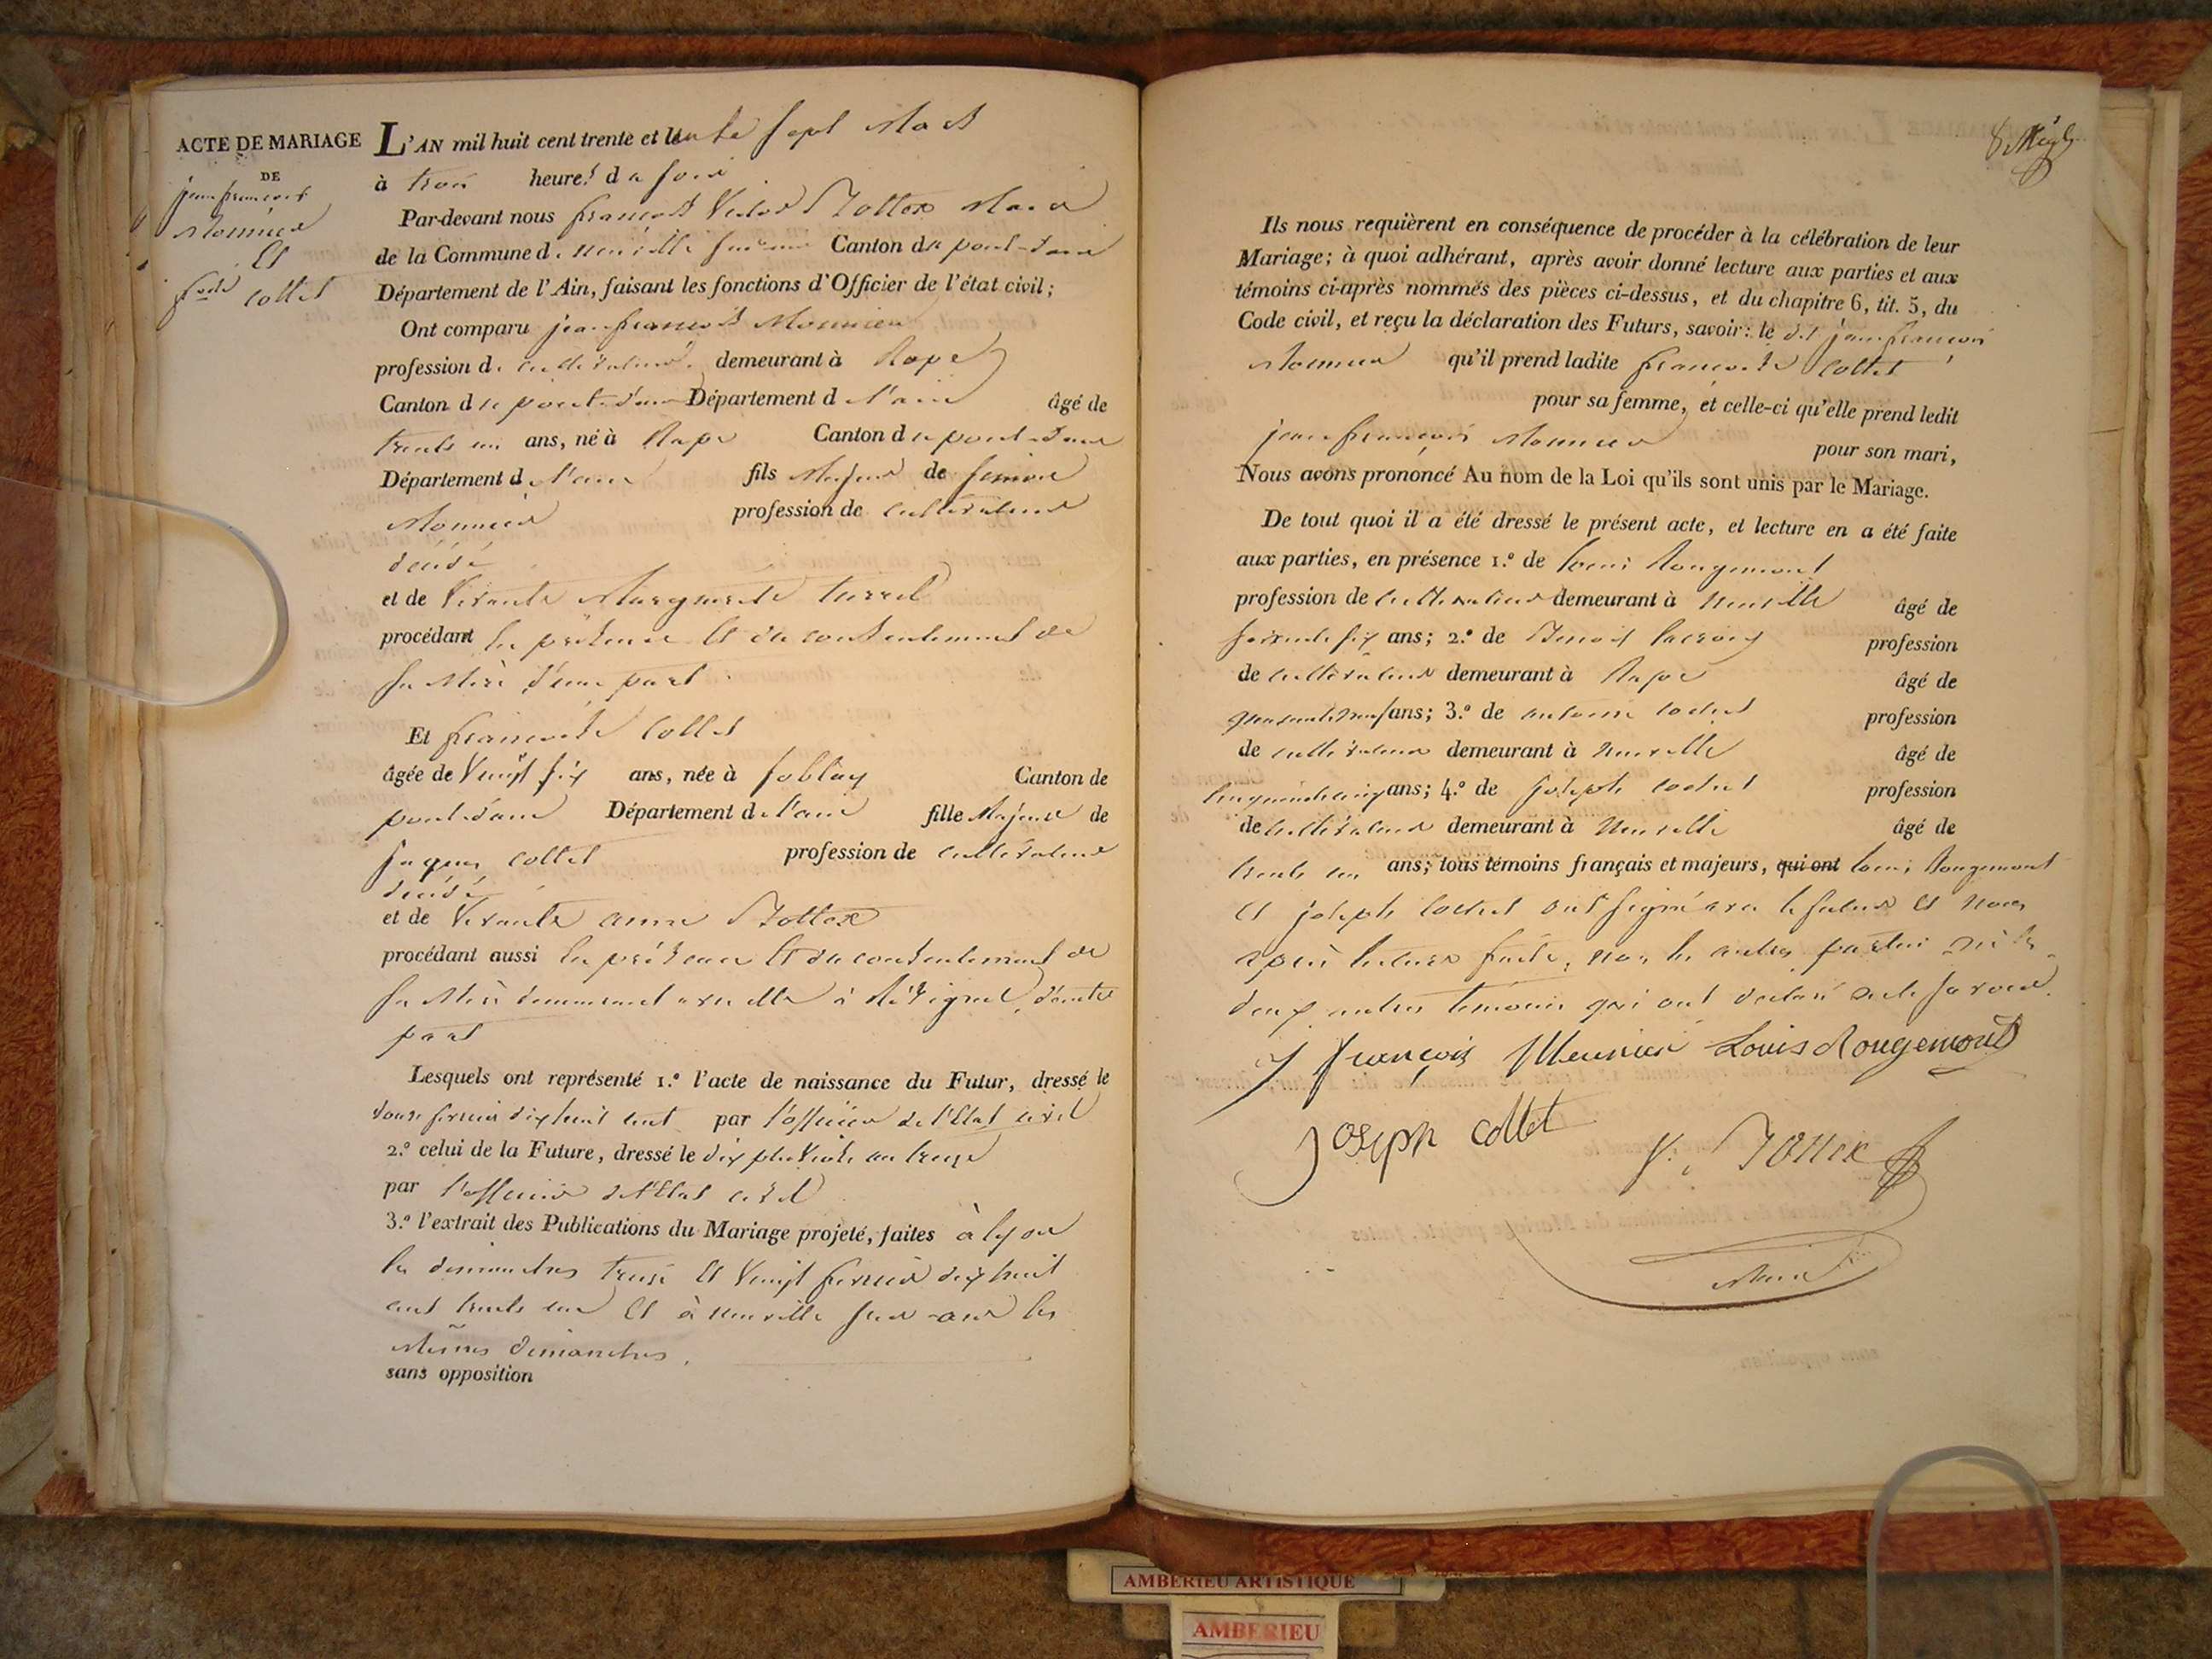 ACTE DE MARIAGE
DE
jean françois
Monnier
Et
fçoise collet
L'AN mil huit cent trente et un le sept Mars
à trois heures du soir
Par-devant nous françois Victor Bottex Maire
de la Commune de neuville sur ain Canton du pont-dain
Département de l'Ain, faisant les fonctions d'Officier de l'état civil;
Ont comparu jean françois Monnier
profession de cultivateur demeurant à Rape
Canton du pont-dain Département de l'ain âgé de
trente un ans, né à Rape Canton du pont-dain
Département de l'ain fils Majeur de
Monnier profession de cultivateur
décédé
et de vivante Marguerite
procédant en présence et du consentement de
sa Mère d'une part
Et françoise collet
âgée de vingt six ans, née à soblay Canton de
pont-dain Département de l'ain fille Majeure de
jaques collet profession de cultivateur
décédé
et de vivante anne Bottex
procédant aussi en présence et du consentement de
sa Mère demeurant avec elle à d'autre
part
Lesquels ont représenté 1.º l'acte de naissance du Futur, dressé le
dix huit cent par l'officier de l'Etat civil
2.º celui de la Future, dressé le dix pluviose an treize
par l'officier de l'Etat civil
3.º l'extrait des Publications du Mariage projeté, faites à lyon
les dimanches treize et vingt fevrier dix huit
cent trente un et à neuville sur ain les
Mêmes dimanches.
sans opposition
8
Ils nous requièrent en conséquence de procéder à la célébration de leur
Mariage; à quoi adhérant, après avoir donné lecture aux parties et aux
témoins ci-après nommés des pièces ci-dessus, et du chapitre 6, tit. 5, du
Code civil, et reçu la déclaration des Futurs, savoir: le dit jean françois
Monnier qu'il prend ladite françoise collet
pour sa femme, et celle-ci qu'elle prend ledit
jean françois Monnier pour son mari,
Nous avons prononcé Au nom de la Loi qu'ils sont unis par le Mariage.
De tout quoi il a été dressé le présent acte, et lecture en a été faite
aux parties, en présence 1.º de louis Rougemont
profession de cultivateur demeurant à neuville âgé de
soixante six ans; 2.º de Benoit lacroix profession
de cultivateur demeurant à Rape âgé de
quarante neuf ans; 3.º de antoine collet profession
de cultivateur demeurant à neuville âgé de
cinquante cinq ans; 4.º de joseph collet profession
de cultivateur demeurant à neuville âgé de
trente un ans; tous témoins français et majeurs, qui ont louis Rougemont
et joseph collet ont signé avec le futur et nous
après lecture faite, non les autres parties ni les
deux autres témoins qui ont déclaré ne le savoir.
j françois Meunier Louis Rougemont
joseph collet
V. Bottex
Maire
AMBERIEU ARTISTIQUE
AMBERIEU